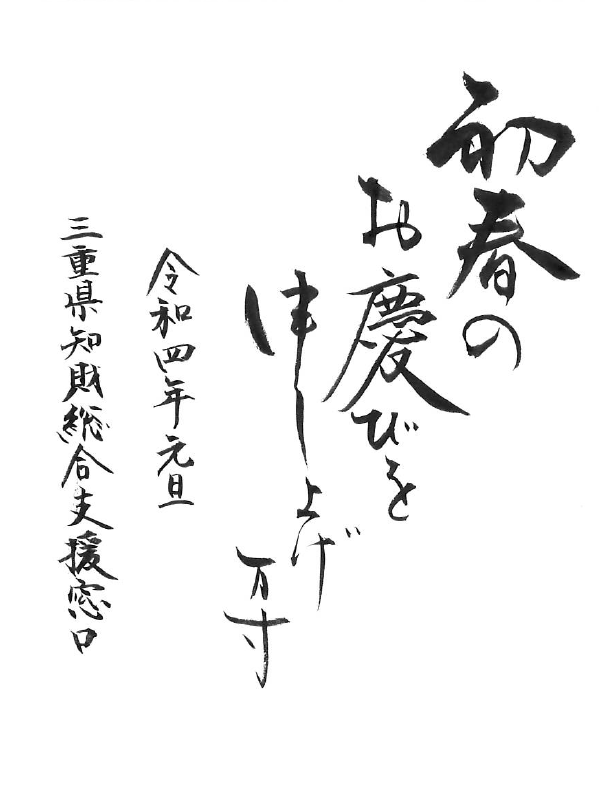 初春の
お慶びを
申し上げ
万寸
令和四年元旦
三重県知財総合支援窓口